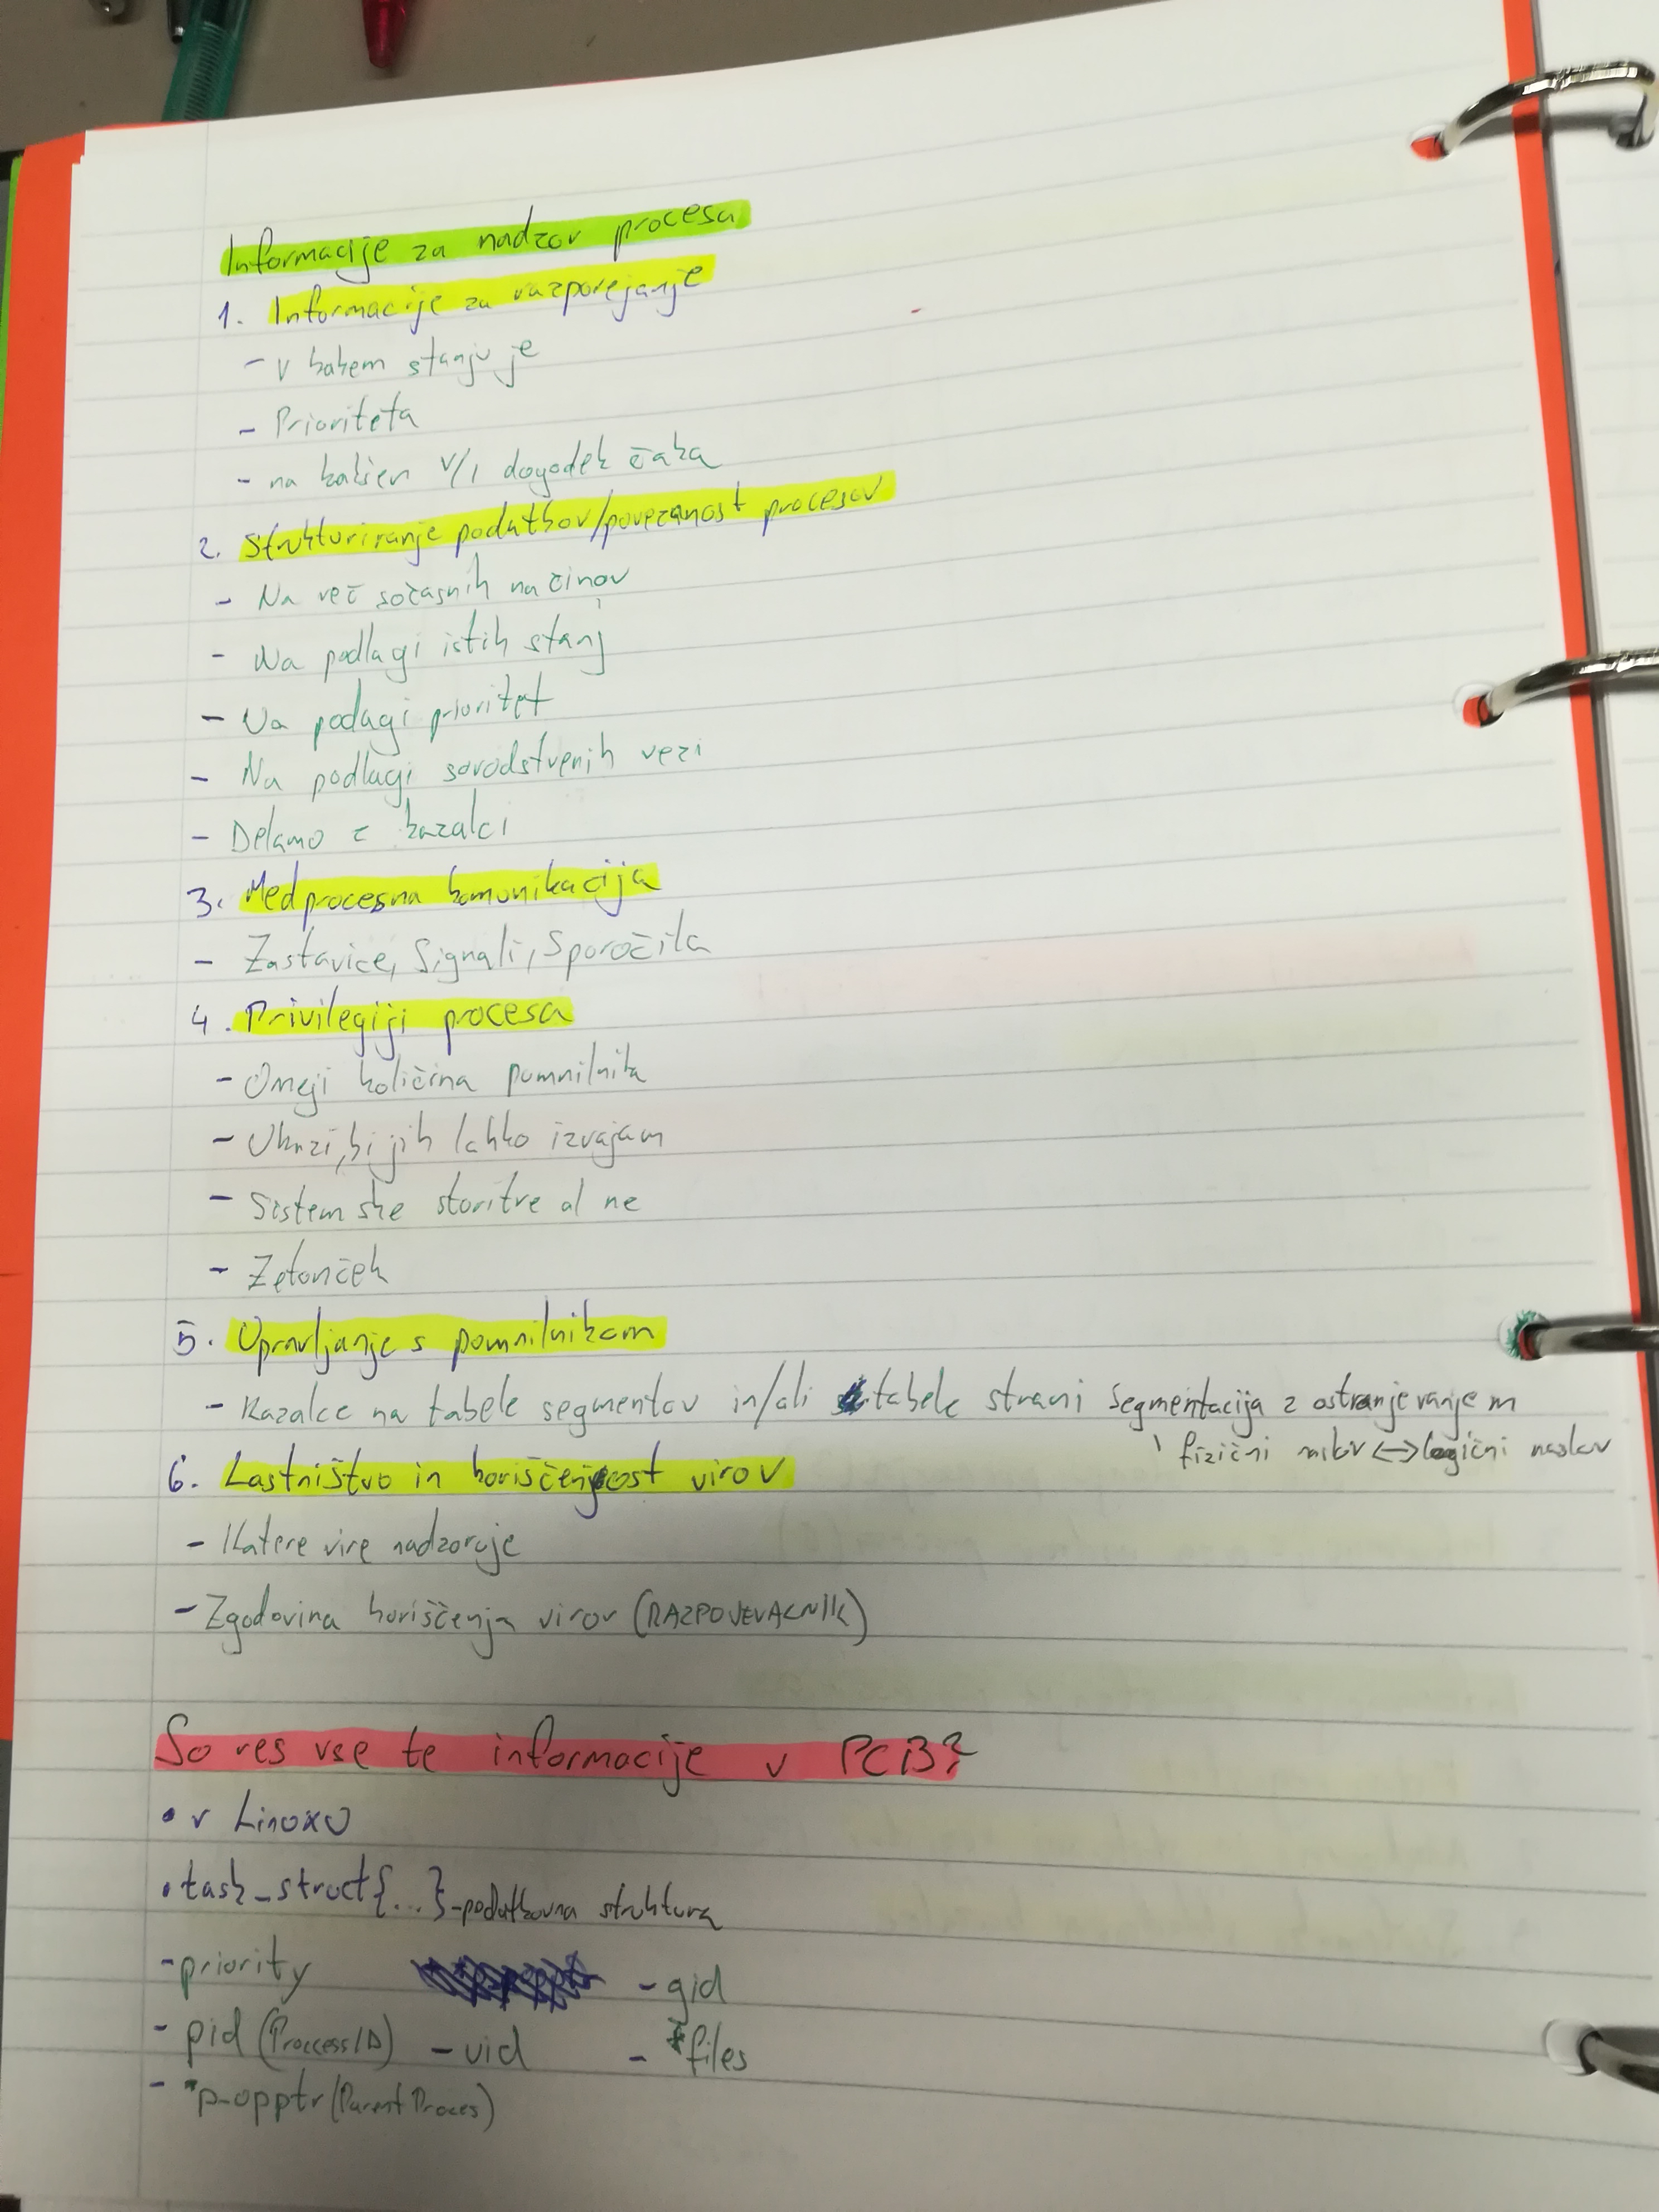 Informacije za nadzor procesa
1. Informacije za razporejanje
- V kakem stanju je
- Prioriteta
- na kakšen V/I dogodek čaka
2. Strukturiranje podatkov/povezanost procesov
- Na več sočasnih načinov
- Na podlagi istih stanj
- Na podagi prioritet
- Na podlagi sorodstvenih vezi
- Delamo z kazalci
3. Medprocesna komunikacija
- Zastavice, Signali, Sporočila
4. Privilegiji procesa
- Omeji količina pomnilnika
- Ukazi, ki jih lahko izvajam
- Sistemske storitve al ne
- Žetonček
5. Upravljanje s pomnilnikom
- Kazalce na tabele segmentov in/ali tabele strani Segmentacija z ostranjevanjem
fizični naslov <-> logični naslov
6. Lastništvo in koriščenost virov
- Katere vire nadzoruje
- Zgodovina koriščenja virov (RAZPOJEVALNIK)
So res vse te informacije v PCB?
• v Linuxu
• task_struct{...}-podatkovna struktura
- priority - gid
- pid (Proccess ID) - uid - *files
- *p_opptr (Parent Proces)